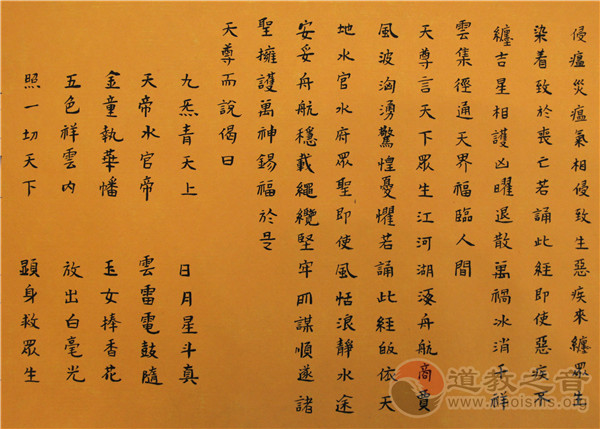 侵瘟災瘟氣相侵致生惡疾來纏眾生
染着致於喪亡若誦此經即使惡疾不
纏吉星相護凶曜退散萬禍冰消千祥
雲集徑通天界福臨人間
天尊言天下眾生江河湖海舟航商賈
風波洶湧驚惶憂懼若誦此經皈依天
地水官水府眾聖即使風恬浪靜水途
安妥舟航穩載繩纜堅牢所謀順遂諸
聖擁護萬神錫福於是
天尊而說偈曰
九炁青天上 日月星斗真
天帝水官帝 雲雷電鼓隨
金童執華幡 玉女捧香花
五色祥雲內 放出白毫光
照一切天下 顯身救眾生
道教之音
www.daoisms.org